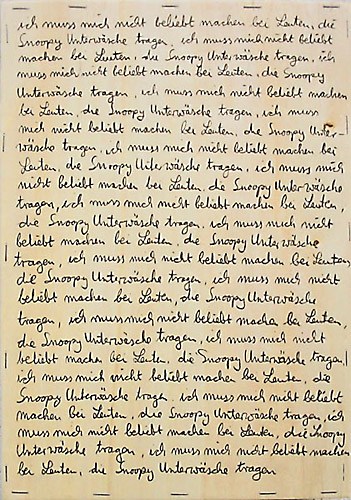 ich muss mich nicht beliebt machen bei Leuten, die
Snoopy Unterwäsche tragen, ich muss mich nicht beliebt
machen bei Leuten, die Snoopy Unterwäsche tragen, ich
muss mich nicht beliebt machen bei Leuten, die Snoopy
Unterwäsche tragen, ich muss mich nicht beliebt machen
bei Leuten, die Snoopy Unterwäsche tragen, ich muss
mich nicht beliebt machen bei Leuten, die Snoopy Unter-
wäsche tragen, ich muss mich nicht beliebt machen bei
Leuten, die Snoopy Unterwäsche tragen, ich muss mich
nicht beliebt machen bei Leuten, die Snoopy Unterwäsche
tragen, ich muss mich nicht beliebt machen bei Leuten,
die Snoopy Unterwäsche tragen, ich muss mich nicht
beliebt machen bei Leuten, die Snoopy Unterwäsche
tragen, ich muss mich nicht beliebt machen bei Leuten
die Snoopy Unterwäsche tragen, ich muss mich nicht
beliebt machen bei Leuten, die Snoopy Unterwäsche
tragen, ich muss mich nicht beliebt machen bei Leuten,
die Snoopy Unterwäsche tragen, ich muss mich nicht
beliebt machen bei Leuten, die Snoopy Unterwäsche tragen,
ich muss mich nicht beliebt machen bei Leuten, die
Snoopy Unterwäsche tragen, ich muss mich nicht beliebt
machen bei Leuten, die Snoopy Unterwäsche tragen, ich
muss mich nicht beliebt machen bei Leuten, die Snoopy
Unterwäsche tragen, ich muss mich nicht beliebt machen
bei Leuten, die Snoopy Unterwäsche tragen